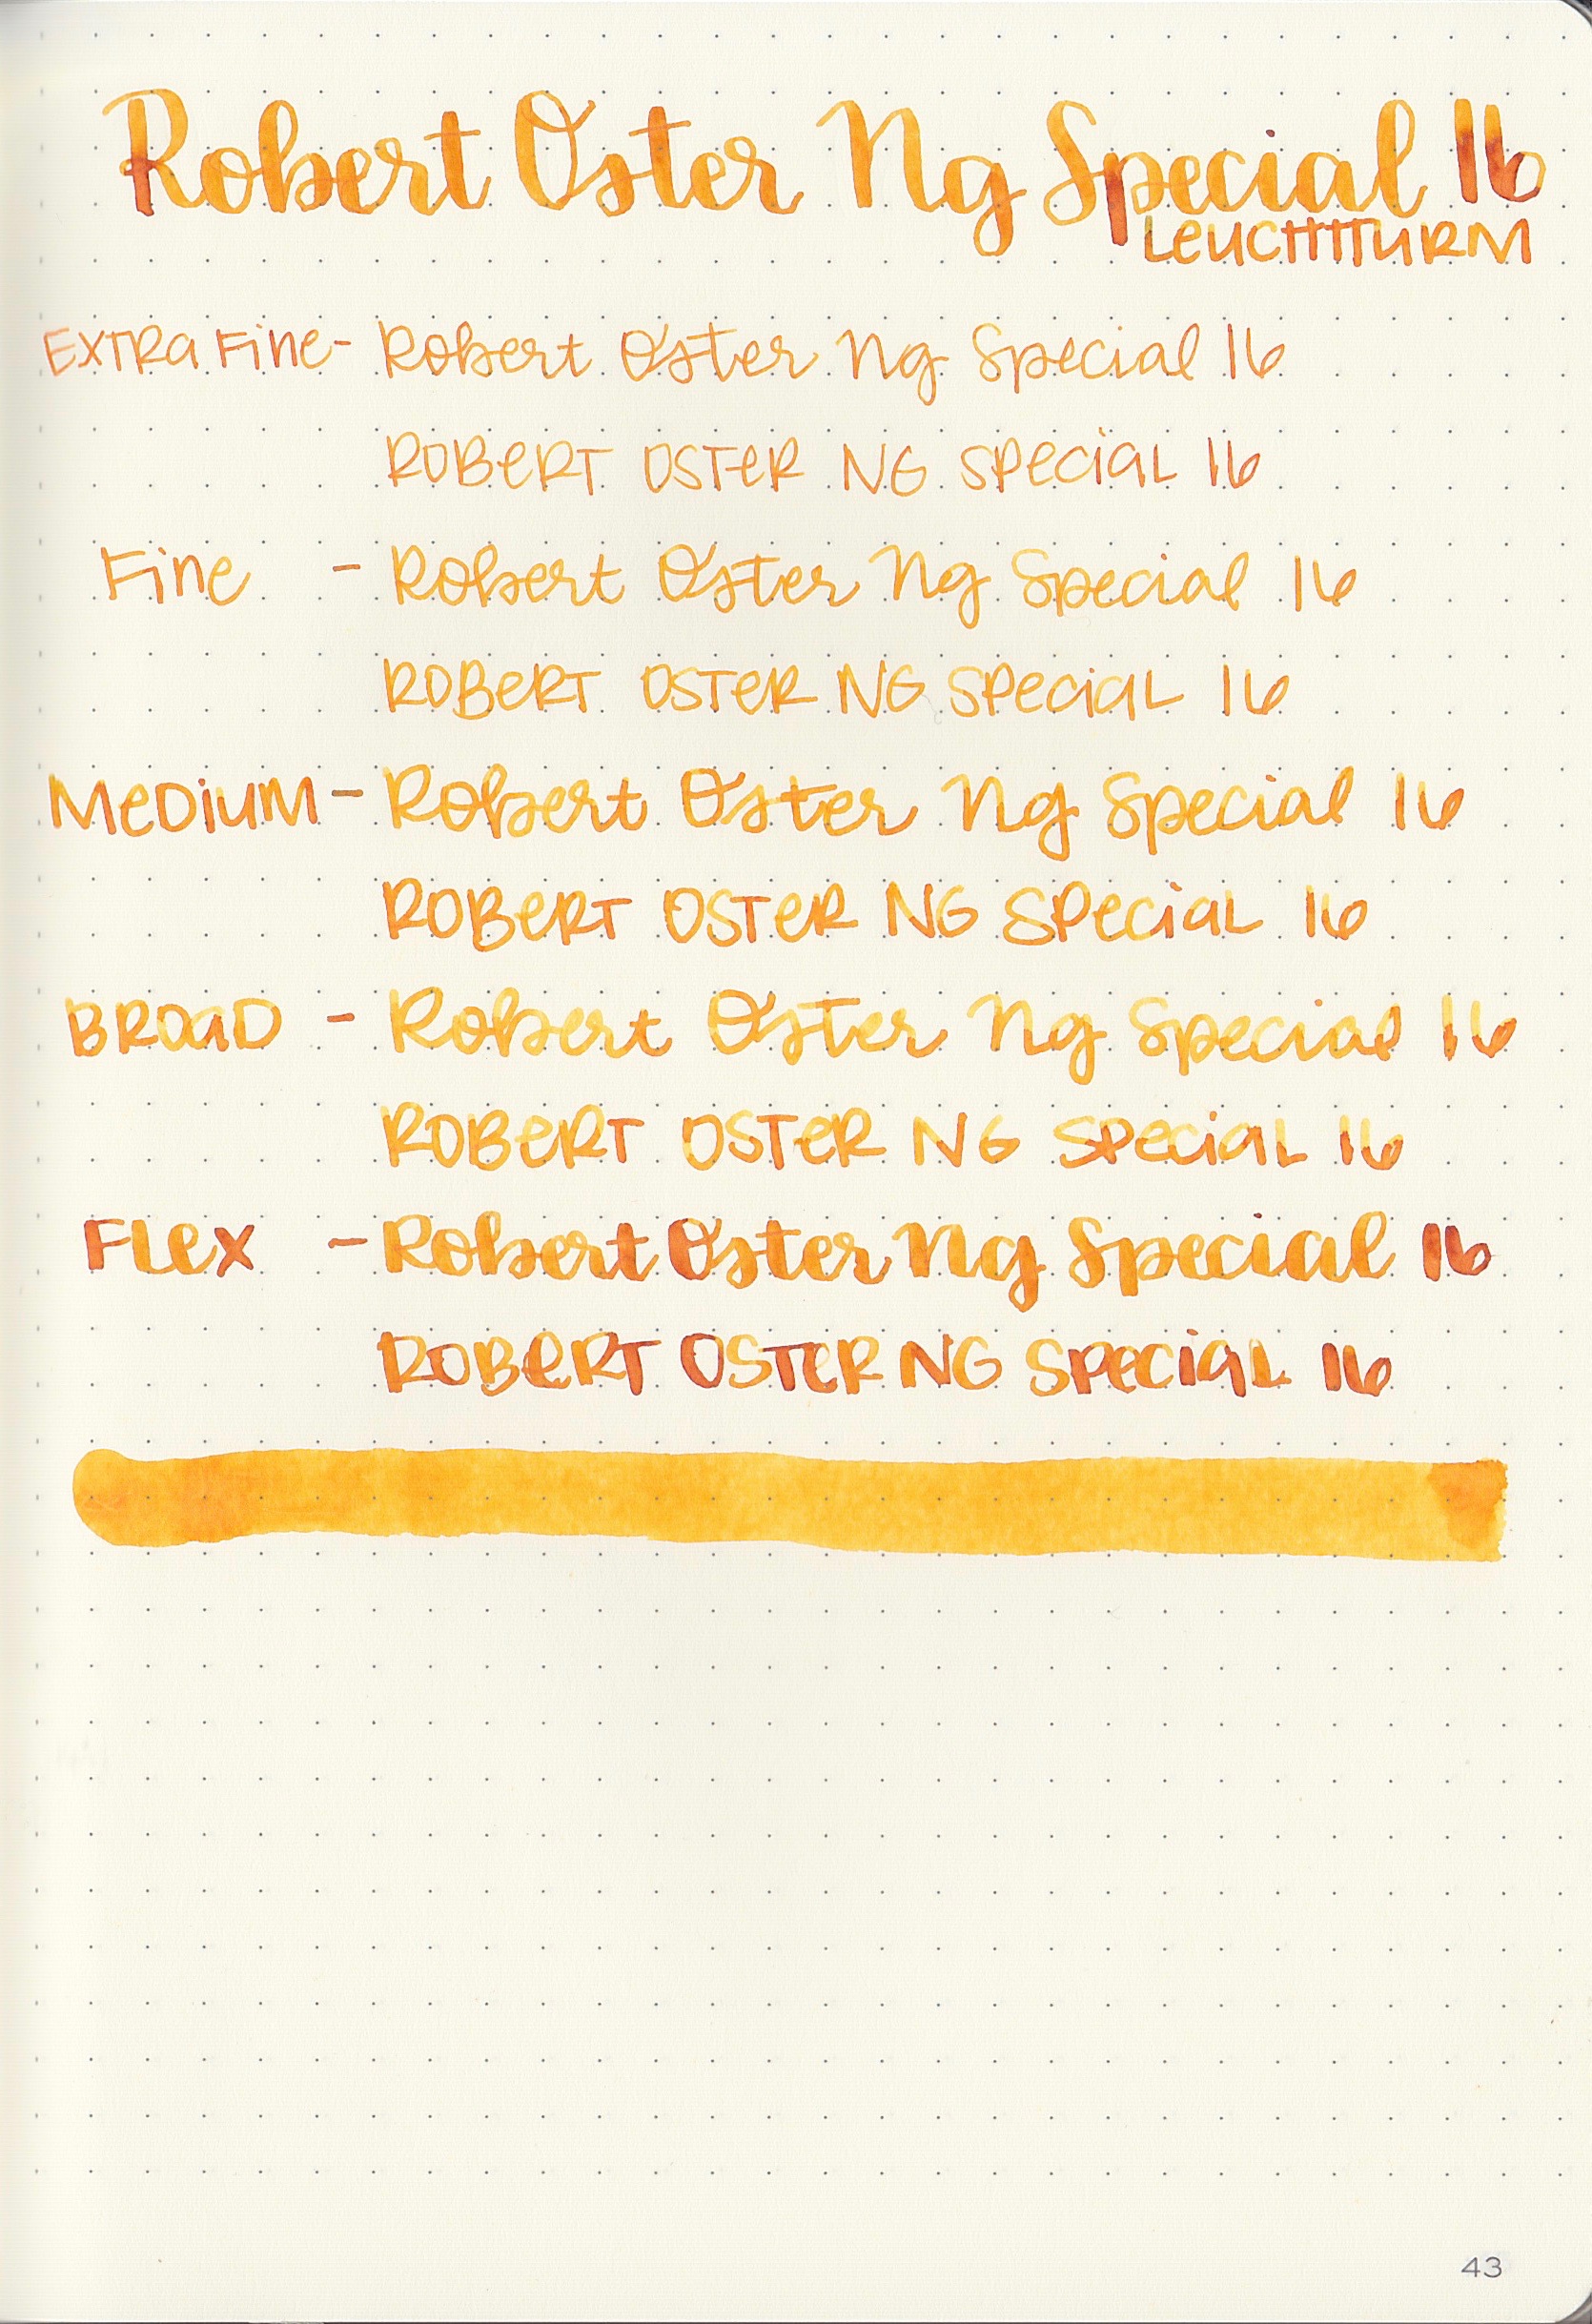 Robert Oster Ng Special 16
LEUCHTTURM
EXTRA FINE - Robert Oster Ng Special 16
ROBERT OSTER NG SPECIAL 16
FINE - Robert Oster Ng Special 16
ROBERT OSTER NG SPECIAL 16
MEDIUM - Robert Oster Ng Special 16
ROBERT OSTER NG SPECIAL 16
BROAD - Robert Oster Ng Special 16
ROBERT OSTER NG SPECIAL 16
FLEX - Robert Oster Ng Special 16
ROBERT OSTER NG SPECIAL 16
43